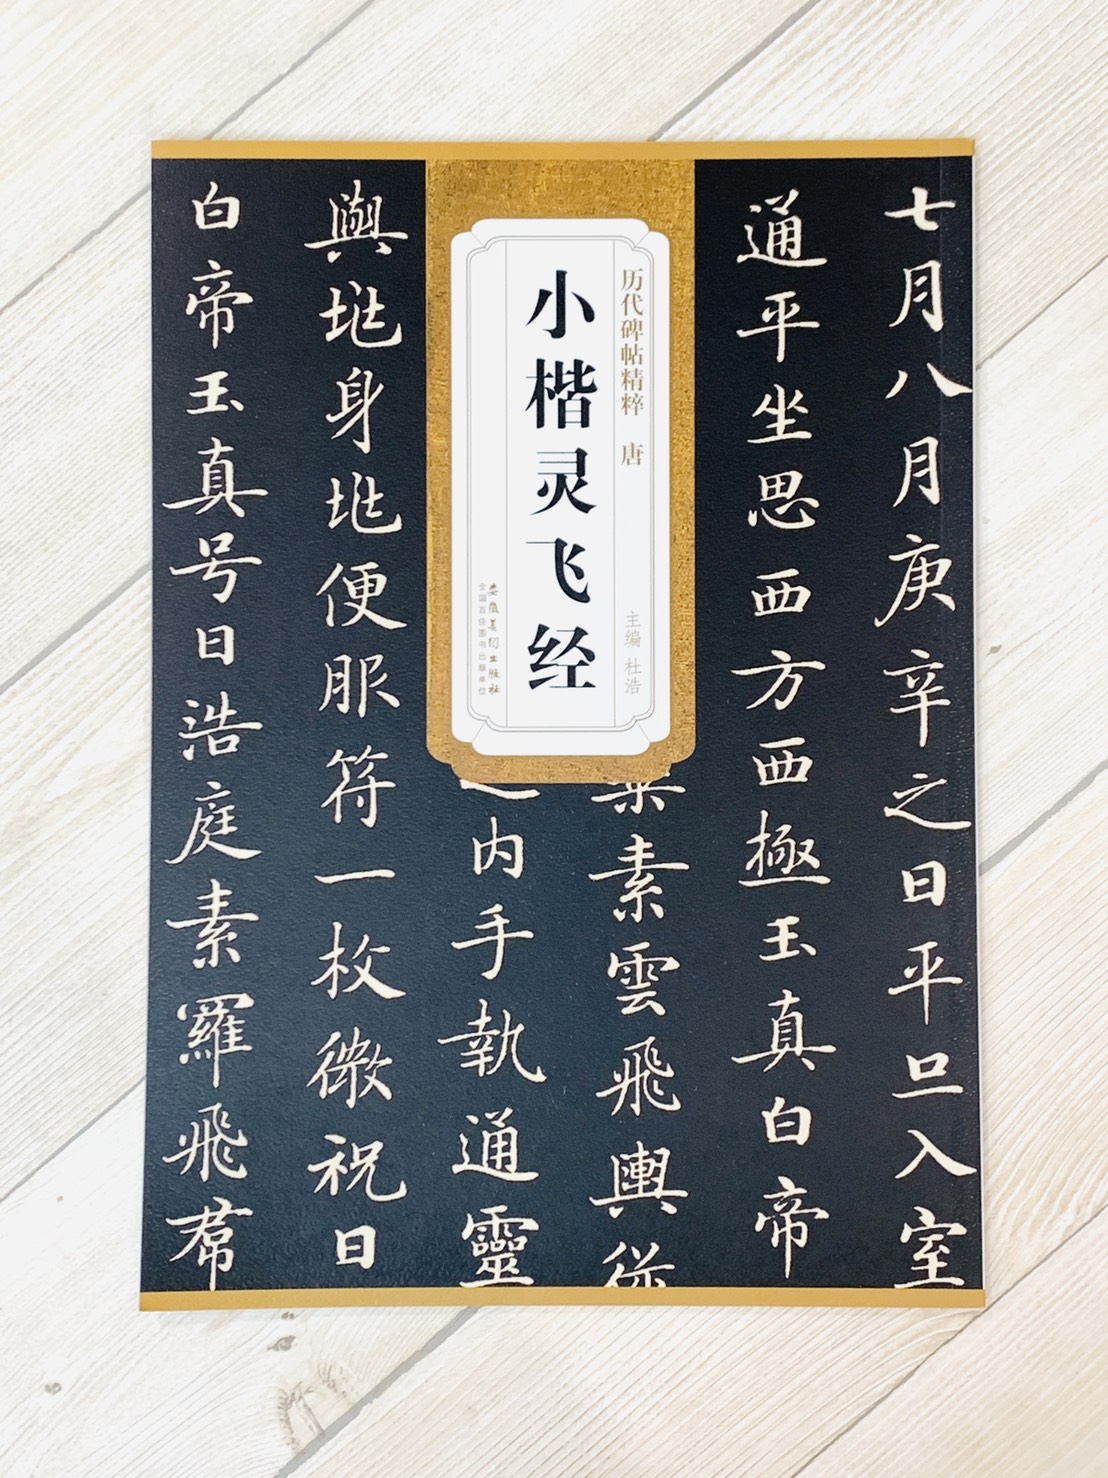 七月八月庚辛之日平旦入室
通平坐思西方西極玉真白帝
素雲飛輿從
内手執通靈
輿地身地便服符一枚微祝曰
白帝玉真号曰浩庭素羅飛帬
历代碑帖精粹 唐
主编 杜浩
小楷灵飞经
安徽美术出版社
全国百佳图书出版单位